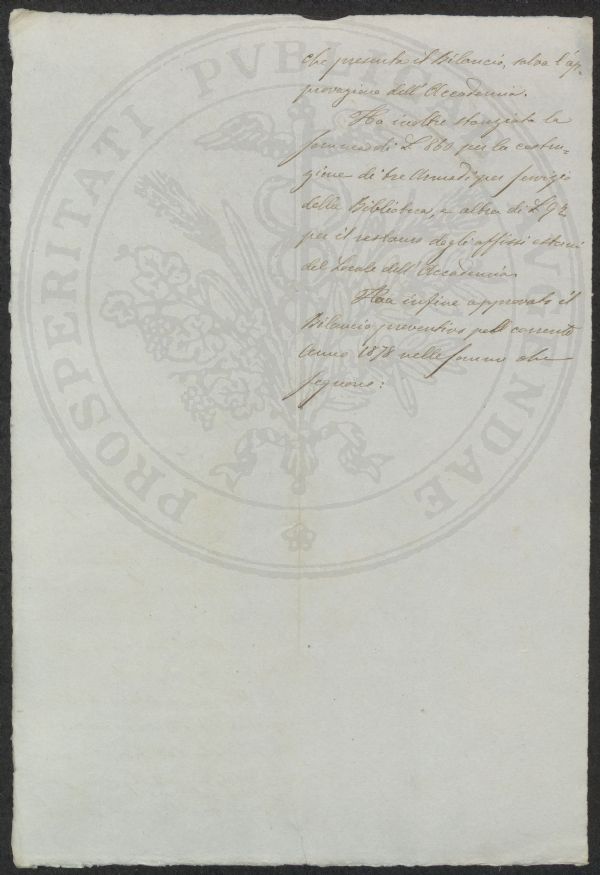 PROSPERITATI PUBLICAE AUGENDAE
che presenta il Bilancio, salva l'ap-
provazione dell'Accademia.
Ha inoltre stanziata la
somma di £ 860 per la costru-
zione di tre Armadi per servizio
della Biblioteca, e altra di £ 92
per il restauro degli affissi esterni
del Locale dell'Accademia.
Ha infine approvato il
Bilancio preventivo pell corrente
Anno 1878 nelle somme che
seguono: